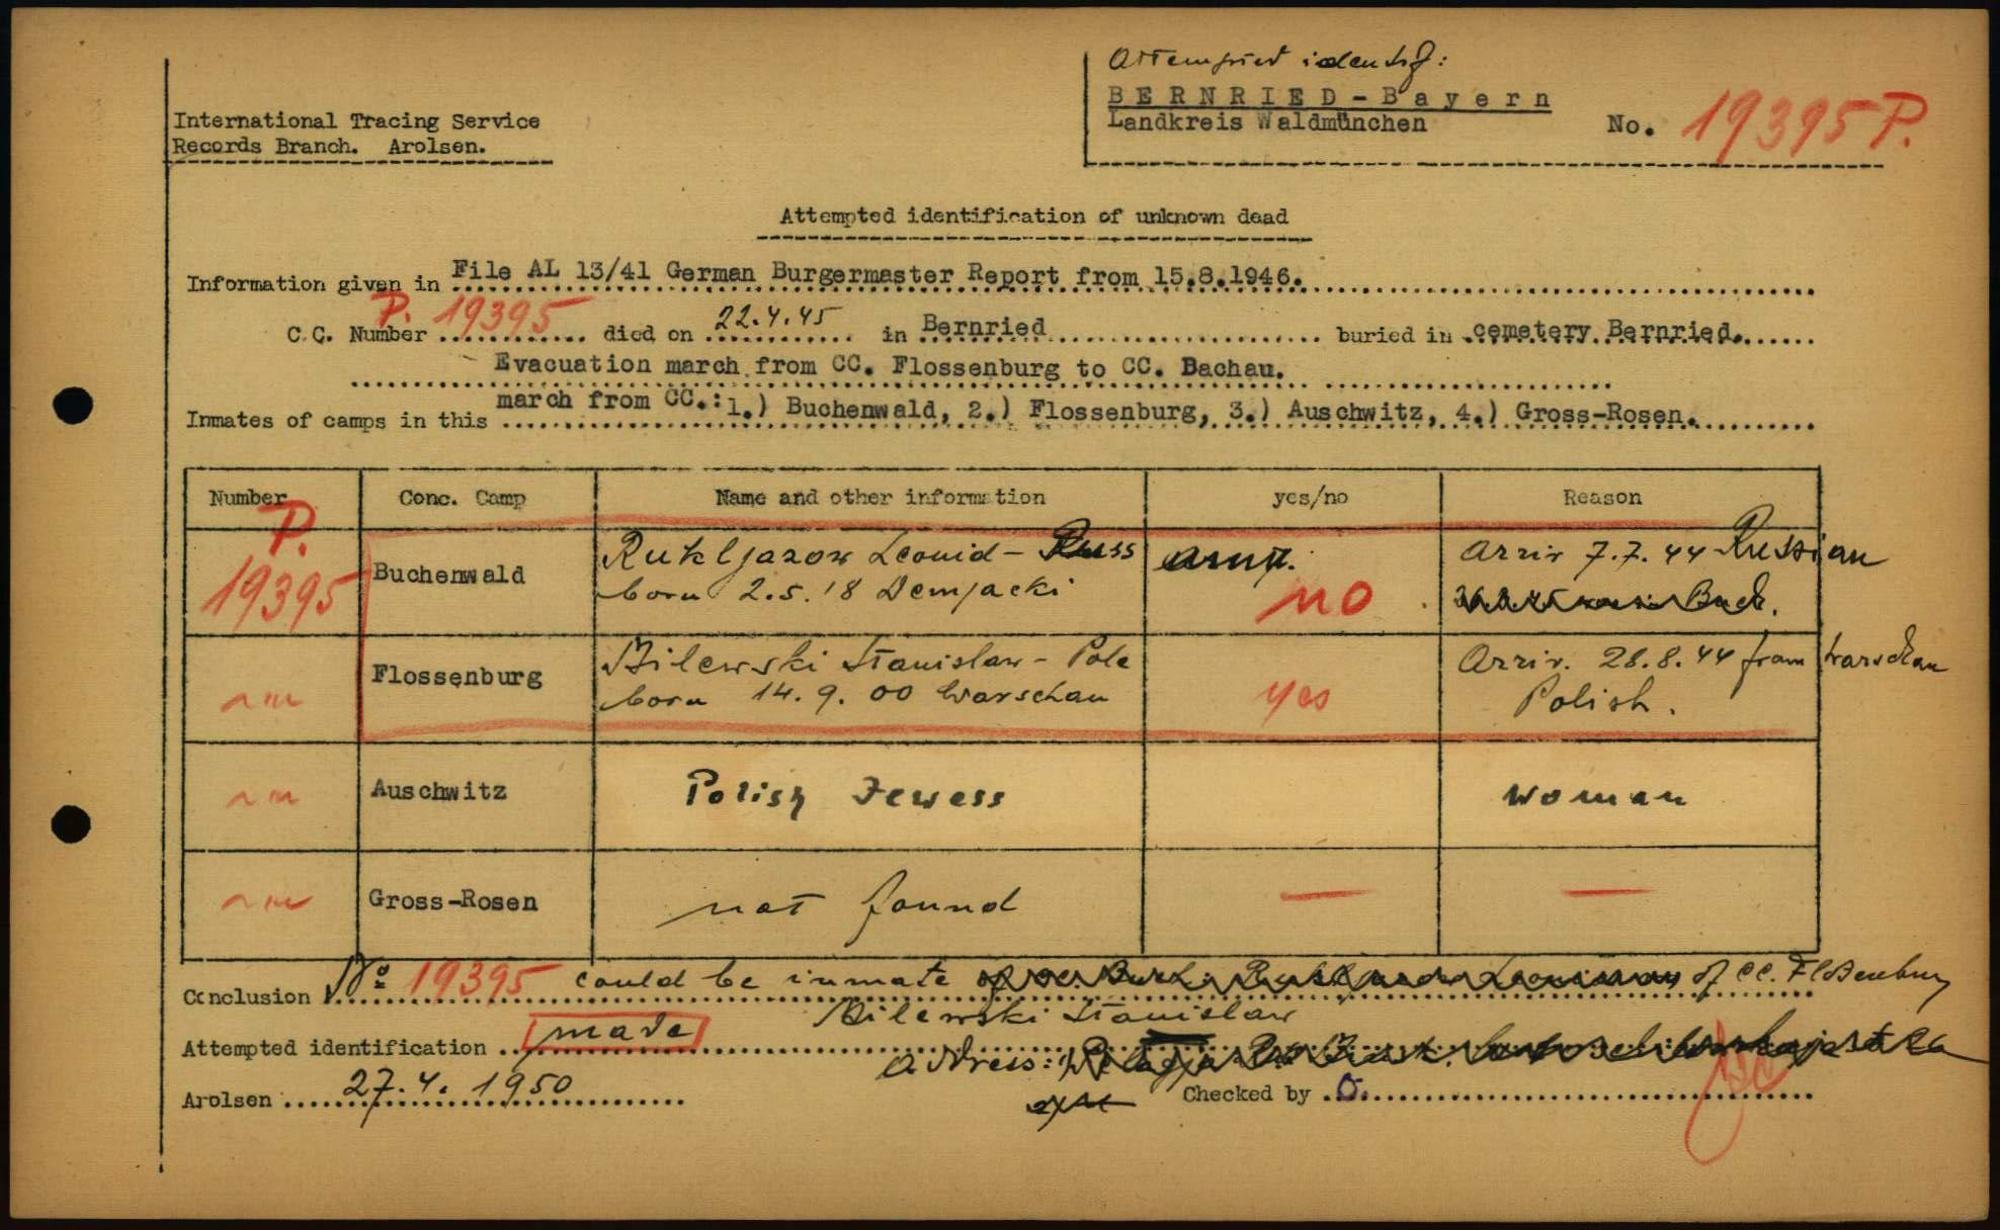 Attempted identif:
BERNRIED-Bayern
Landkreis Waldmünchen
No. 19395 P.
International Tracing Service
Records Branch. Arolsen.
Attempted identification of unknown dead
Information given in File AL 13/41 German Burgermaster Report from 15.8.1946.
C.C. Number P. 19395 died on 22.4.45 in Bernried buried in cemetery Bernried.
Evacuation march from CC. Flossenburg to CC. Bachau.
Inmates of camps in this march from CC.: 1.) Buchenwald, 2.) Flossenburg, 3.) Auschwitz, 4.) Gross-Rosen.
Number Conc. Camp Name and other information yes/no Reason
P. 19395 Buchenwald Leonid - Russ no Arriv 7.7.44 Russian
born 2.5.18 Demjacki Buch.
Flossenburg Bilewski Stanislaw - Pole yes Arriv. 28.8.44 from Warschau
born 14.9.00 Warschau Polish.
Auschwitz Polish Jewess Woman
Gross-Rosen not found — —
Conclusion No 19395 could be inmate of CC. Flossenburg
Bilewski Stanislaw
Attempted identification made
Address:
Arolsen 27.4.1950 Checked by